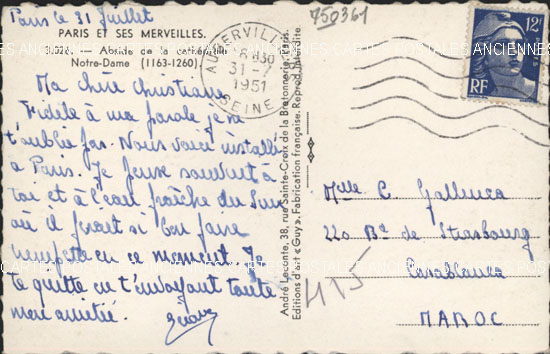 Paris le 31 Juillet
750361
PARIS ET SES MERVEILLES.
Abside de la cathédrale
Notre-Dame (1163-1260)
AUBERVILLIERS
31-7
1951
SEINE
12F
POSTES
RF
Ma chère Christiane
Fidèle à ma parole je ne
t'oublie pas. Nous voici installés
à Paris. Je pense souvent à
toi et à l'eau fraîche du
où il ferait si bon faire
trempette en ce moment. Je
te quitte en t'envoyant toute
mon amitié.
André Leconte, 38, rue Sainte-Croix de la Bretonnerie, Paris.
Editions d'art "Guy". Fabrication française. Reprod. interdite
Melle C.
220 Bd de Strasbourg
Casablanca
MAROC
415